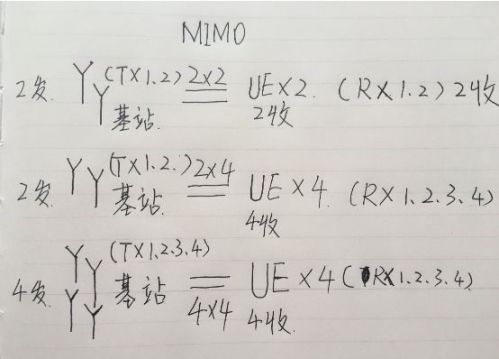 MIMO
2发 (TX1.2) 2x2 UE×2. (RX1.2) 2收
基站 2收
2发 (TX1.2.) 2x4 UE×4 (RX1.2.3.4)
基站 4收
(TX1.2.3.4)
4发 基站 UE×4 (RX1.2.3.4)
4x4 4收